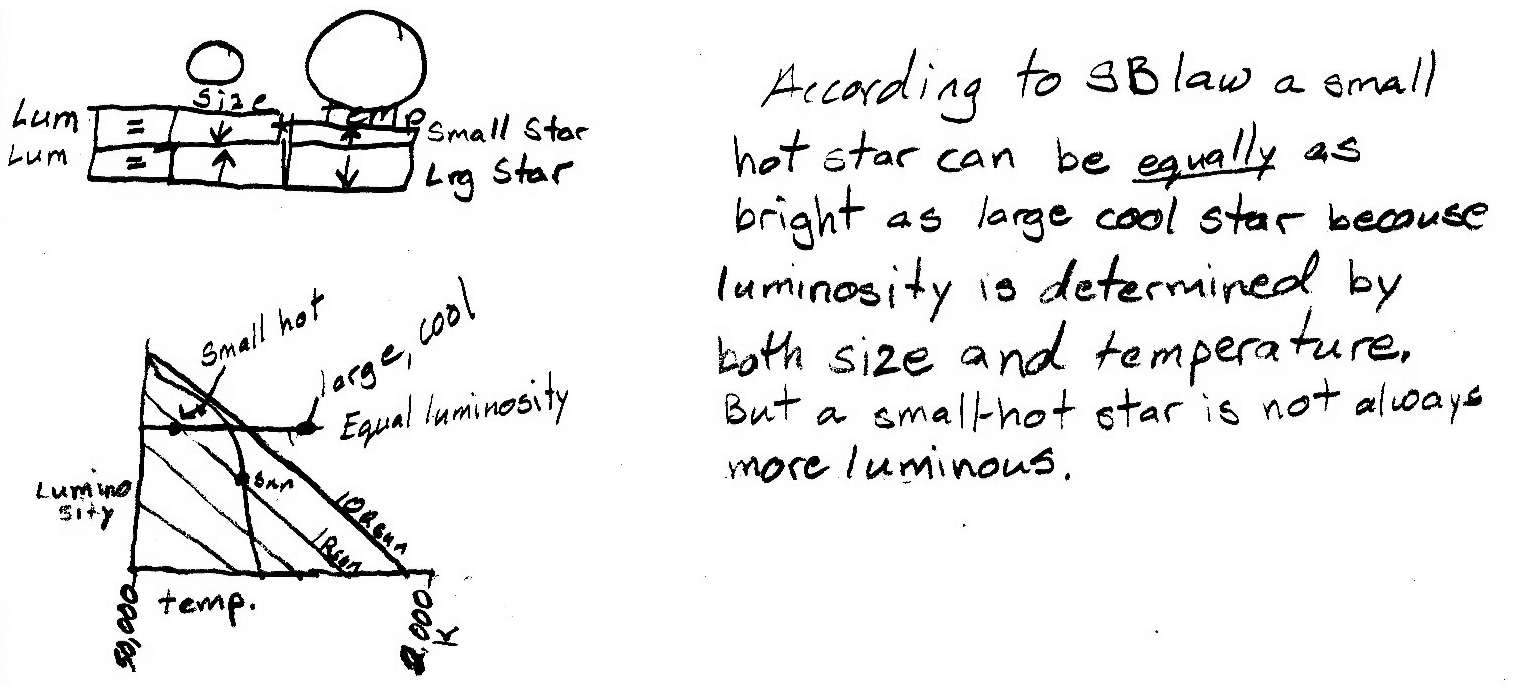 Size
Temp
Lum = ↓ ↑ Small Star
Lum = ↑ ↓ Lrg Star
small hot
large, cool
Equal luminosity
Sun
Lumino
sity
10 Rsun
1Rsun
temp.
50,000
2,000
K
According to SB law a small
hot star can be equally as
bright as large cool star because
luminosity is determined by
both size and temperature.
But a small-hot star is not always
more luminous.